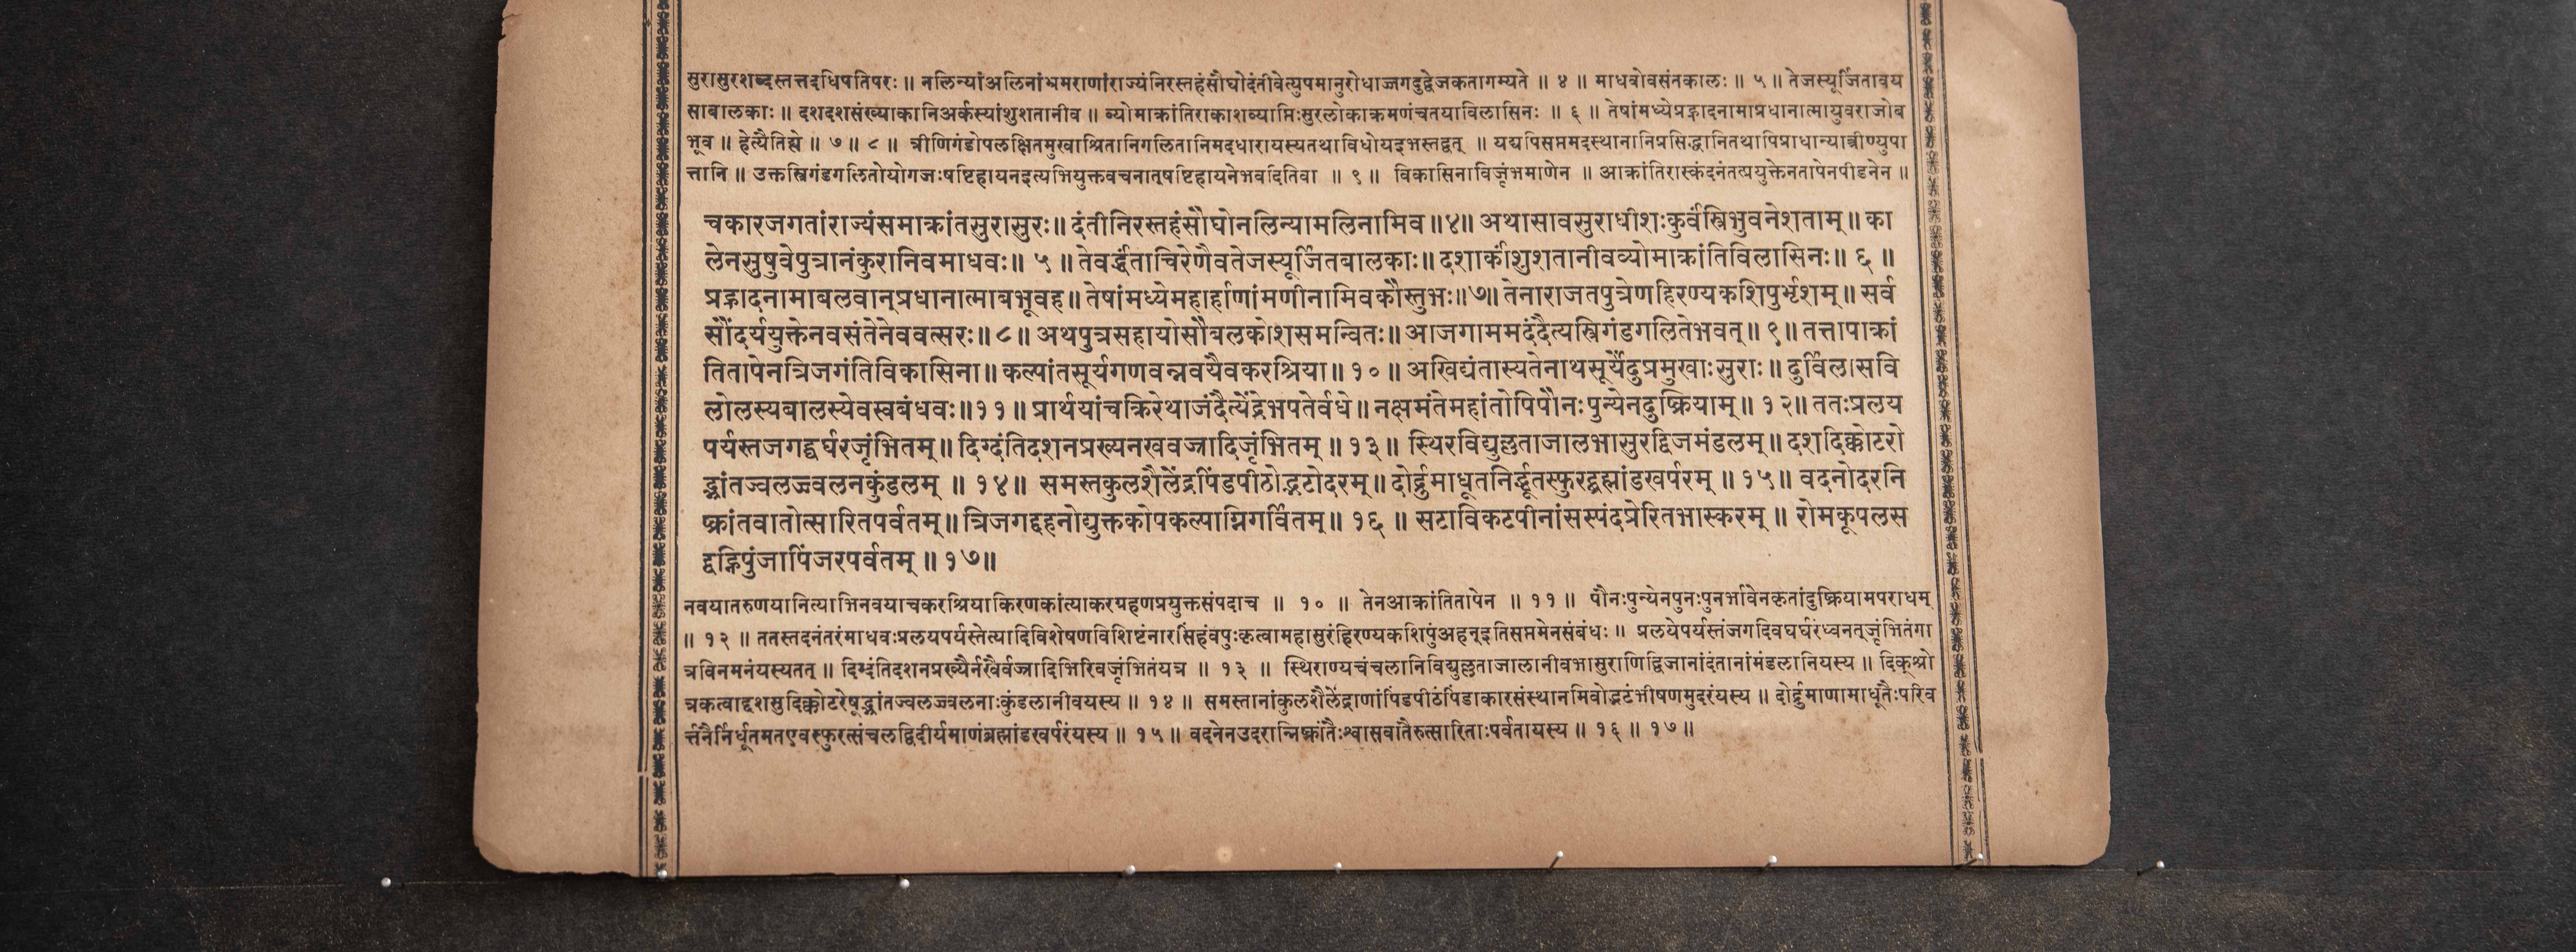 सुरासुरशब्दस्तत्तदधिपतिपरः ॥ नलिन्यांअलिनांभ्रमराणांराज्यंनिरस्तहंसौघोदंतीवेत्युपमानुरोधाज्जगदुद्वेजकतागम्यते ॥ ४ ॥ माधवोवसंतकालः ॥ ५ ॥ तेजस्यूर्जितावय
साबालकाः ॥ दशदशसंख्याकानिअर्कस्यांशुशतानीव ॥ व्योमाक्रांतिराकाशव्याप्तिःसुरलोकाक्रमणंचतयाविलासिनः ॥ ६ ॥ तेषांमध्येप्रह्लादनामाप्रधानात्मायुवराजोब
भूव ॥ हेत्यैतिह्ये ॥ ७ ॥ ८ ॥ त्रीणिगंडोपलक्षितमुखाश्रितानिगलितानिमदधारायस्यतथाविधोयइभस्तद्वत् ॥ यद्यपिसप्तमदस्थानानिप्रसिद्धानितथापिप्राधान्यात्रीण्युपा
त्तानि ॥ उक्तस्त्रिगंडगलितोयोगजःषष्टिहायनइत्यभियुक्तवचनात्षष्टिहायनेभवदितिवा ॥ ९ ॥ विकासिनाविजृंभमाणेन ॥ आक्रांतिरास्कंदनंतत्प्रयुक्तेनतापेनपीडनेन ॥
चकारजगतांराज्यंसमाक्रांतसुरासुरः ॥ दंतीनिरस्तहंसौघोनलिन्यामलिनामिव ॥४॥ अथासावसुराधीशःकुर्वंस्त्रिभुवनेशताम् ॥ का
लेनसुषुवेपुत्रानंकुरानिवमाधवः ॥ ५ ॥ तेवर्द्धंताचिरेणैवतेजस्यूर्जितबालकाः ॥ दशार्कांशुशतानीवव्योमाक्रांतिविलासिनः ॥ ६ ॥
प्रह्लादनामाबलवान्प्रधानात्माबभूवह ॥ तेषांमध्येमहार्हाणांमणीनामिवकौस्तुभः ॥७॥ तेनाराजतपुत्रेणहिरण्यकशिपुर्भृशम् ॥ सर्व
सौंदर्ययुक्तेनवसंतेनेववत्सरः ॥ ८ ॥ अथपुत्रसहायोसौबलकोशसमन्वितः ॥ आजगाममदंदैत्यस्त्रिगंडगलितेभवत् ॥ ९ ॥ तत्तापाक्रां
तितापेनत्रिजगंतिविकासिना ॥ कल्पांतसूर्यगणवन्नवयैवकरश्रिया ॥ १० ॥ अखिद्यंतास्यतेनाथसूर्येंदुप्रमुखाःसुराः ॥ दुर्विलासवि
लोलस्यबालस्येवस्वबंधवः ॥११॥ प्रार्थयांचक्रिरेथाजंदैत्येंद्रेभपतेर्वधे ॥ नक्षमंतेमहांतोपिपौनःपुन्येनदुष्क्रियाम् ॥ १२ ॥ ततःप्रलय
पर्यस्तजगद्घर्घरजृंभितम् ॥ दिग्दंतिदशनप्रख्यनखवज्रादिजृंभितम् ॥ १३ ॥ स्थिरविद्युल्लताजालभासुरद्विजमंडलम् ॥ दशदिक्कोटरो
द्भ्रांतज्वलज्ज्वलनकुंडलम् ॥ १४ ॥ समस्तकुलशैलेंद्रपिंडपीठोद्भटोदरम् ॥ दोर्द्रुमाधूतनिर्द्धूतस्फुरद्ब्रह्मांडखर्परम् ॥ १५ ॥ वदनोदरनि
ष्क्रांतवातोत्सारितपर्वतम् ॥ त्रिजगद्दहनोद्युक्तकोपकल्पाग्निगर्वितम् ॥ १६ ॥ सटाविकटपीनांसस्पंदप्रेरितभास्करम् ॥ रोमकूपलस
द्वह्निपुंजापिंजरपर्वतम् ॥ १७ ॥
नवयातरुणयानित्याभिनवयाचकरश्रियाकिरणकांत्याकरग्रहणप्रयुक्तसंपदाच ॥ १० ॥ तेनआक्रांतितापेन ॥ ११ ॥ पौनःपुन्येनपुनःपुनर्भावेनकृतांदुष्क्रियामपराधम्
॥ १२ ॥ ततस्तदनंतरंमाधवःप्रलयपर्यस्तेत्यादिविशेषणविशिष्टंनारसिंहंवपुःकृत्वामहासुरंहिरण्यकशिपुंअहन्इतिसप्तमेनसंबंधः ॥ प्रलयेपर्यस्तंजगदिवघर्घरंध्वनत्जृंभितंगा
त्रविनमनंयस्यतत् ॥ दिग्दंतिदशनप्रख्यैर्नखैर्वज्रादिभिरिवजृंभितंयत्र ॥ १३ ॥ स्थिराण्यचंचलानिविद्युल्लताजालानीवभासुराणिद्विजानांदंतानांमंडलानियस्य ॥ दिक्श्रो
त्रकत्वाद्दशसुदिक्कोटरेषूद्भ्रांतज्वलज्ज्वलनाःकुंडलानीवयस्य ॥ १४ ॥ समस्तानांकुलशैलेंद्राणांपिंडपीठंपिंडाकारसंस्थानमिवोद्भटंभीषणमुदरंयस्य ॥ दोर्द्रुमाणामाधूतैःपरिव
र्त्तनैर्निर्धूतमतएवस्फुरत्संचलद्विदीर्यमाणंब्रह्मांडखर्परंयस्य ॥ १५ ॥ वदनेनउदरान्निष्क्रांतैःश्वासवातैरुत्सारिताःपर्वतायस्य ॥ १६ ॥ १७ ॥